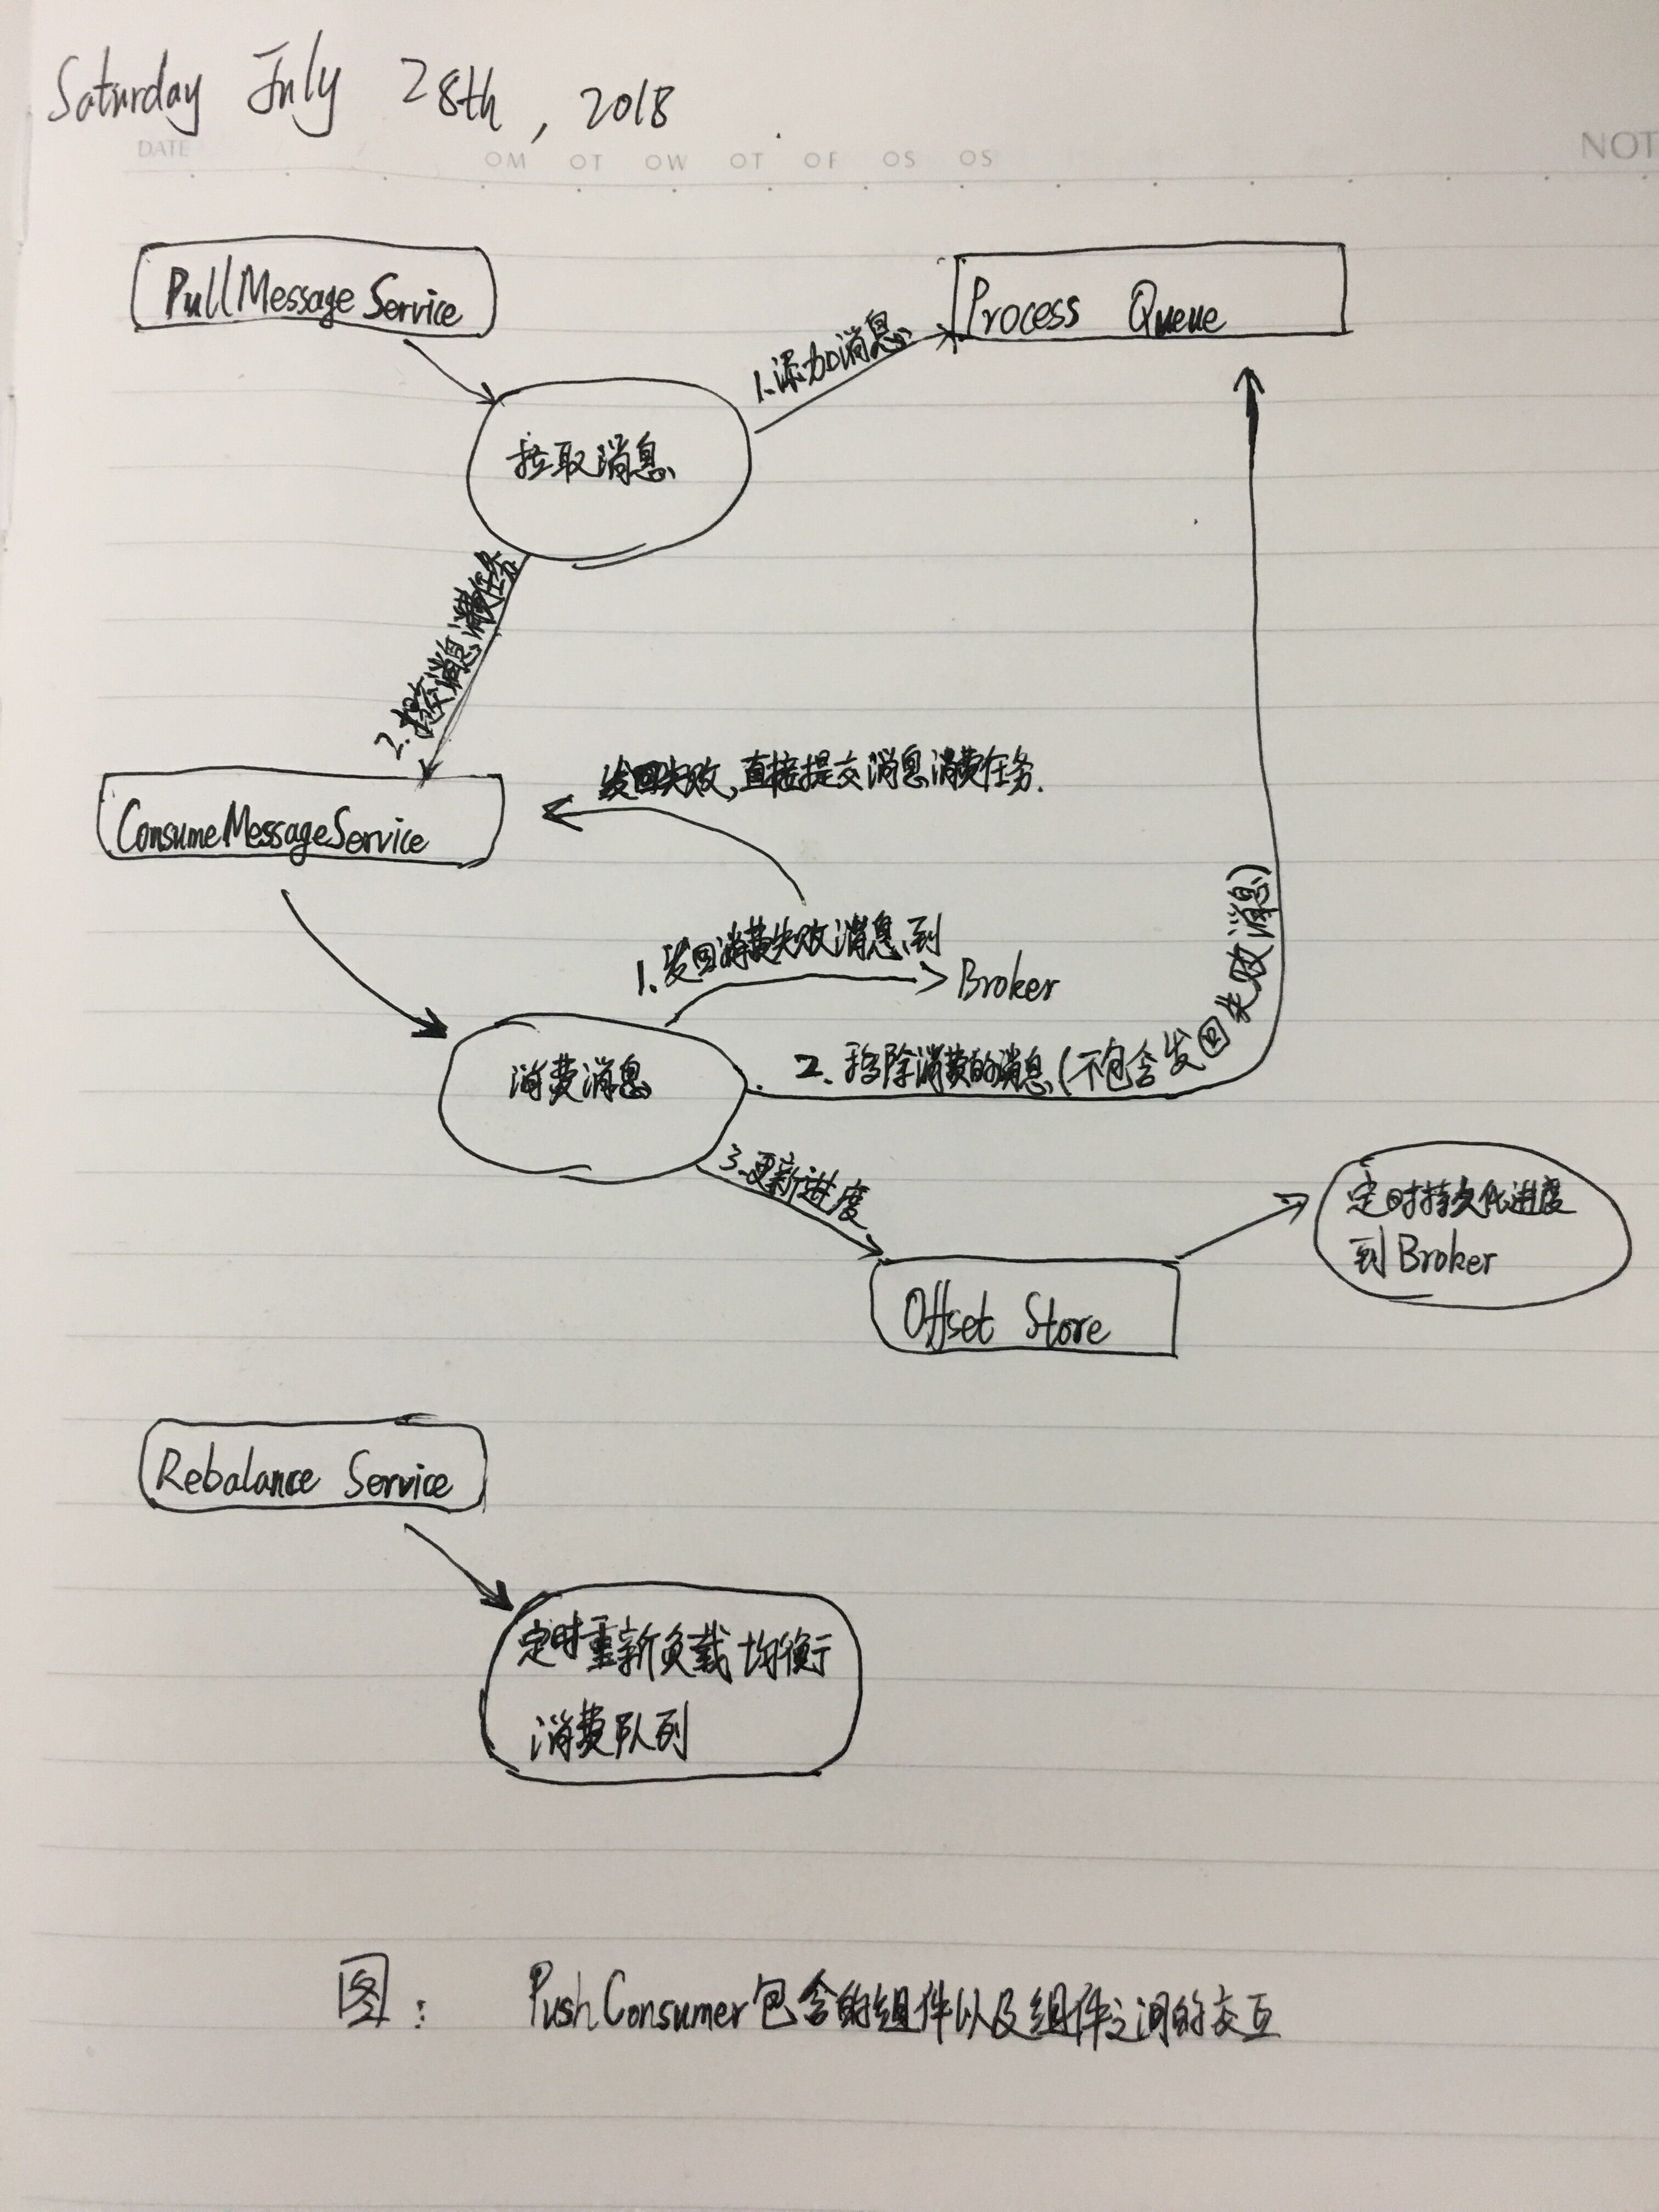 Saturday July 28th, 2018
DATE
OM OT OW OT OF OS OS
NOT
PullMessage Service
Process Queue
1.添加消息
拉取消息
2.提交消息消费任务
发回失败,直接提交消息消费任务.
ConsumeMessageService
1.发回消费失败消息到
Broker
消费消息
2.移除消费的消息(不包含发回失败消息)
3.更新进度
定时持久化进度
到Broker
Offset Store
Rebalance Service
定时重新负载均衡
消费队列
图: PushConsumer包含的组件以及组件之间的交互